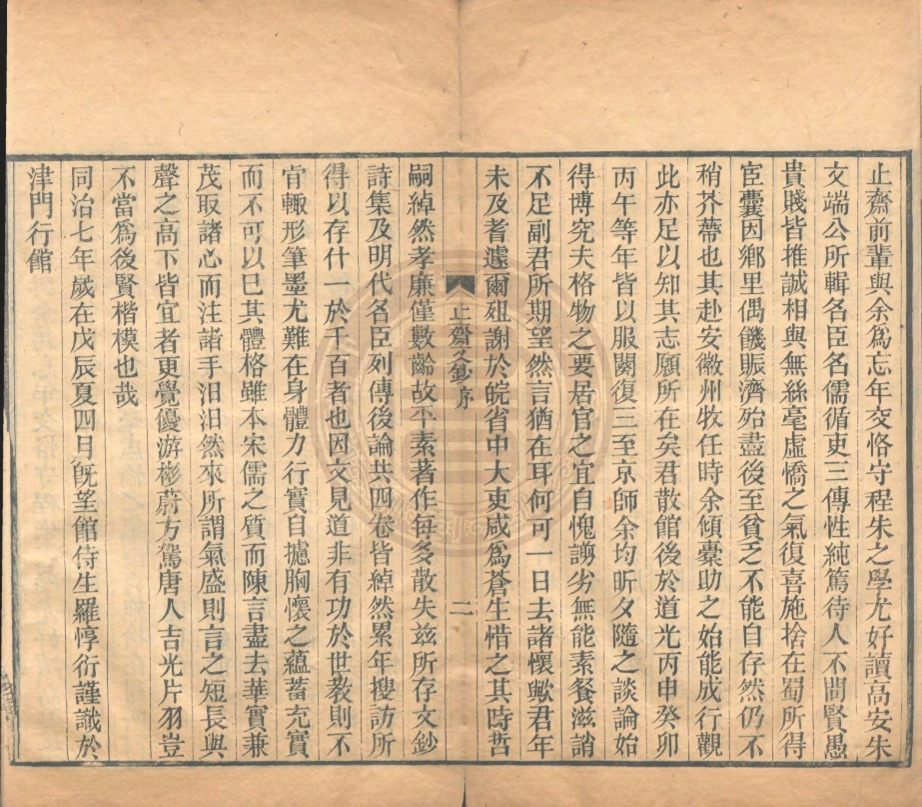 止齋前輩與余為忘年交恪守程朱之學尤好讀高安朱
文端公所輯名臣名儒循吏三傳性純篤待人不間賢愚
貴賤皆推誠相與無絲毫虛憍之氣復喜施捨在蜀所得
宦囊因鄉里偶饑賑濟殆盡後至貧乏不能自存然仍不
稍芥蔕也其赴安徽州牧任時余傾囊助之始能成行觀
此亦足以知其志願所在矣君散館後於道光丙申癸卯
丙午等年皆以服闋復三至京師余均昕夕隨之談論始
得博究夫格物之要居官之宜自愧謭劣無能素餐滋誚
不足副君所期望然言猶在耳何可一日去諸懷歟君年
未及耆遽爾殂謝於皖省中大吏咸為蒼生惜之其時哲
止齋文鈔序
二
嗣綽然孝廉僅數齡故平素著作每多散失茲所存文鈔
詩集及明代名臣列傳後論共四卷皆綽然累年搜訪所
得以存什一於千百者也因文見道非有功於世教則不
肯輙形筆墨尤難在身體力行實自攄胸懷之蘊蓄充實
而不可以已其體格雖本宋儒之質而陳言盡去華實兼
茂取諸心而注諸手汩汩然來所謂氣盛則言之短長與
聲之高下皆宜者更覺優游彬蔚方駕唐人吉光片羽豈
不當為後賢楷模也哉
同治七年歲在戊辰夏四月旣望館侍生羅惇衍謹識於
津門行館